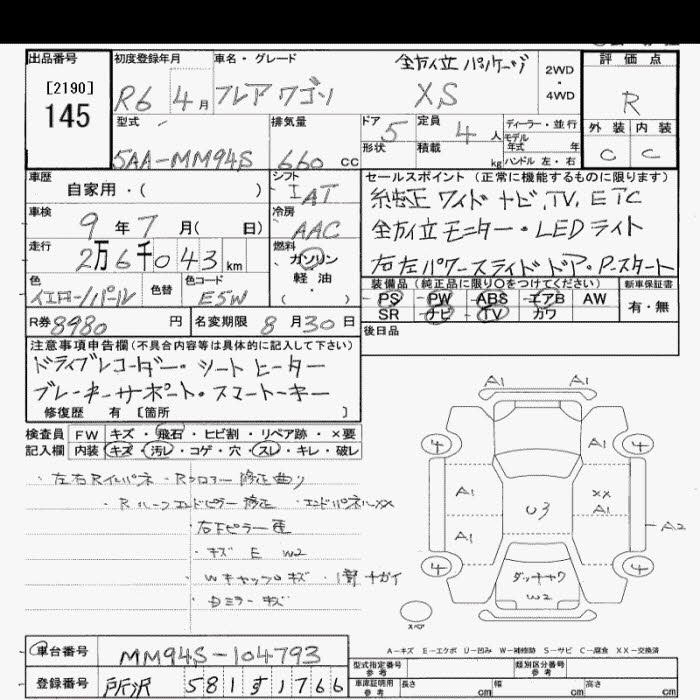 出品番号
[2190]
145
初度登録年月
R6 4月
車名・グレード
全方位パッケージ
フレアワゴン XS
2WD
・
4WD
評価点
R
外装 内装
C C
型式
5AA-MM94S
排気量
660 cc
ドア
5
定員
4 人
形状
積載
kg
ディーラー・並行
モデル
年式 年
ハンドル 左・右
車歴
自家用・( )
シフト
IAT
車検
9年7月( 日)
冷房
AAC
走行
2万6千043km
燃料
ガソリン
軽油
( )
色
イエローパール
色替
色コード
E5W
R券 8980 円
名変期限 8月30日
セールスポイント(正常に機能するものに限ります)
純正ワイドナビ.TV.ETC
全方位モニター・LEDライト
右左パワースライドドア・P.スタート
装備品(純正品に限り〇をつけてください)
PS PW ABS エアB AW
SR ナビ TV カワ
新車保証書
有・無
後日品
注意事項申告欄(不具合内容等は具体的に記入して下さい)
ドライブレコーダー・シートヒーター
ブレーキサポート・スマートキー
修復歴 有 [箇所 ]
検査員 FW キズ・飛石・ヒビ割・リペア跡・×要
記入欄 内装 キズ・汚レ・コゲ・穴・スレ・キレ・破レ
・左右Rインパネ・Rフロアー修正曲り
・Rルーフエンドピラー修正 ・エンドパネルXX
・右下ピラー凹
・キズ E W2
・Wキャップキズ・
・ミラーキズ
A1 A1
4 4
A1
A1 XX
A1
U3
A1
A2
4 4
ダッキャク
W2
スペア
A-キズ E-エクボ U-凹み W-補修跡 S-サビ C-腐食 XX-交換済
車台番号 MM94S-104793
登録番号 所沢 581す1766
型式指定番号
参考
類別区分番号
参考
車庫証明用
参考
長さ cm 幅 cm 高さ cm